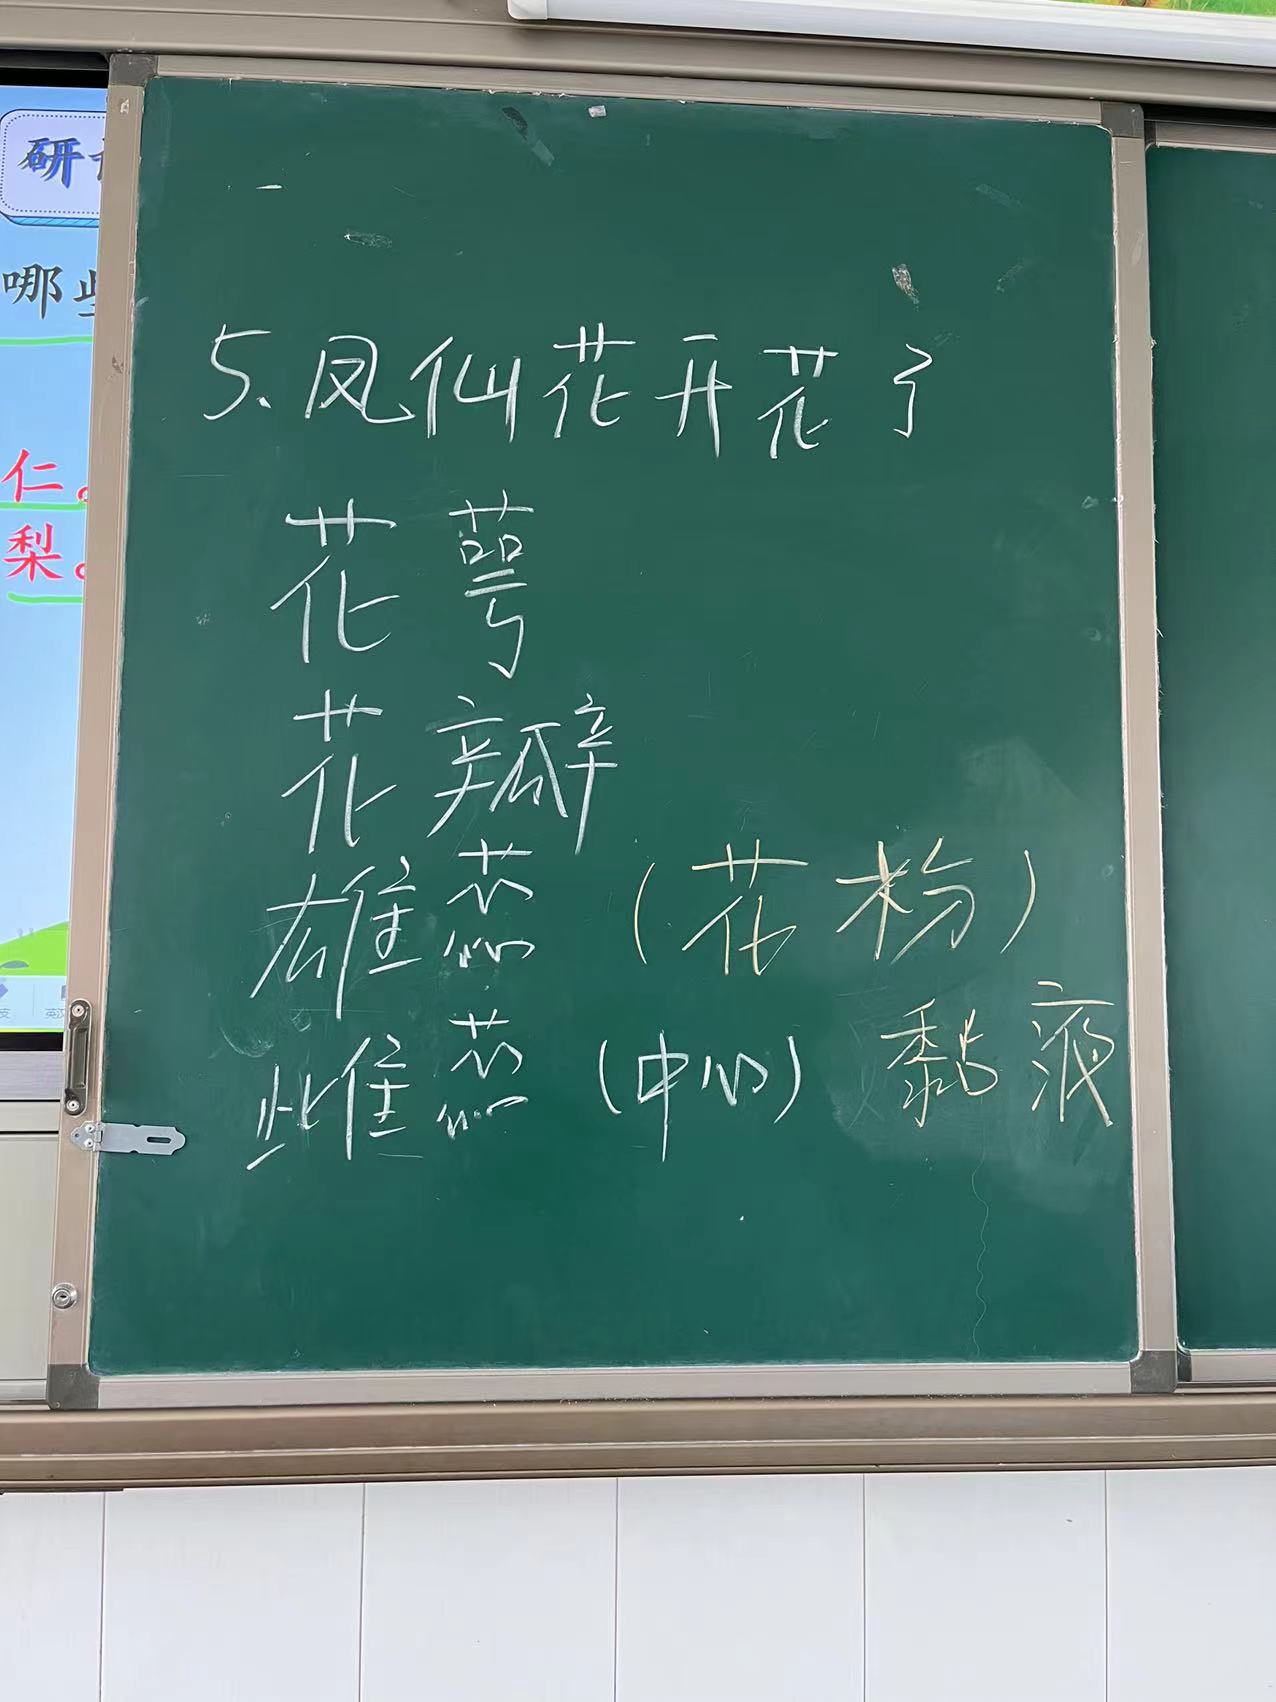 研
哪些
仁。
梨。
5.凤仙花开花了
花萼
花瓣
雄蕊（花粉）
雌蕊（中心）黏液